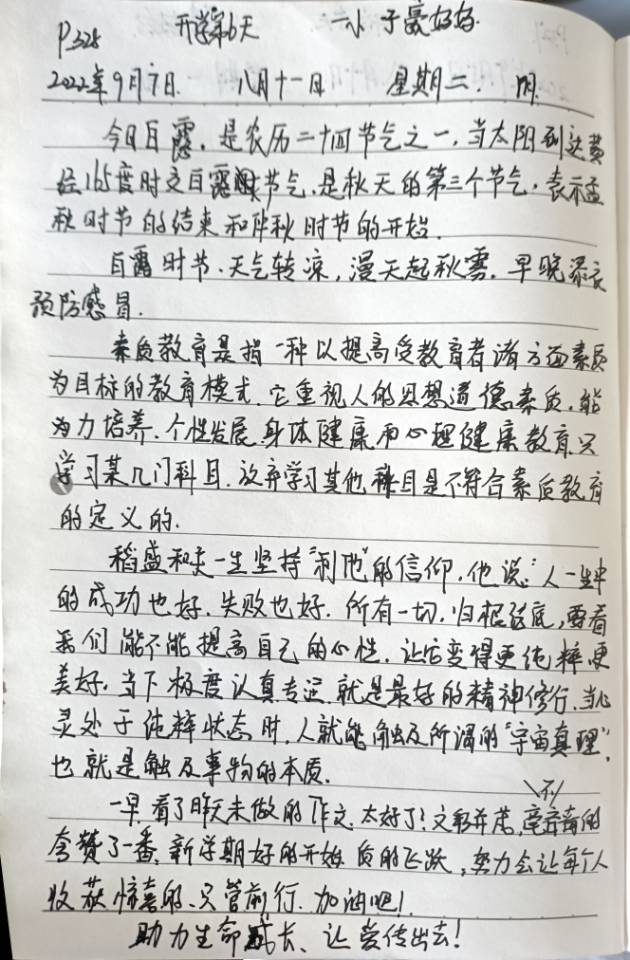 P328 开学第6天 一小 于豪好好
2022年9月7日. 八月十一日 星期二. 阴.
今日白露，是农历二十四节气之一，当太阳到达黄
经165度时交白露节气，是秋天的第三个节气，表示孟
秋时节的结束和仲秋时节的开始.
白露时节、天气转凉，漫天起秋雾，早晚添衣
预防感冒.
素质教育是指一种以提高受教育者诸方面素质
为目标的教育模式.它重视人的思想道德素质，能
为力培养、个性发展、身体健康和心理健康教育.只
学习某几门科目，放弃学习其他科目是不符合素质教育
的定义的.
稻盛和夫一生坚持“利他”的信仰，他说：“人一生中
的成功也好，失败也好，所有一切，归根结底，要看
我们能不能提高自己的心性，让它变得更纯粹更
美好，当下极度认真专注就是最好的精神修行，当心
灵处于纯粹状态时，人就能触及所谓的“宇宙真理”，
也就是触及事物的本质.
一早看了昨天未做的作文，太好了！文彩并茂，毫不吝啬的
夸赞了一番，新学期好的开始，质的飞跃，努力会让每个人
收获惊喜的、只管前行.加油吧！
助力生命成长、让爱传出去！